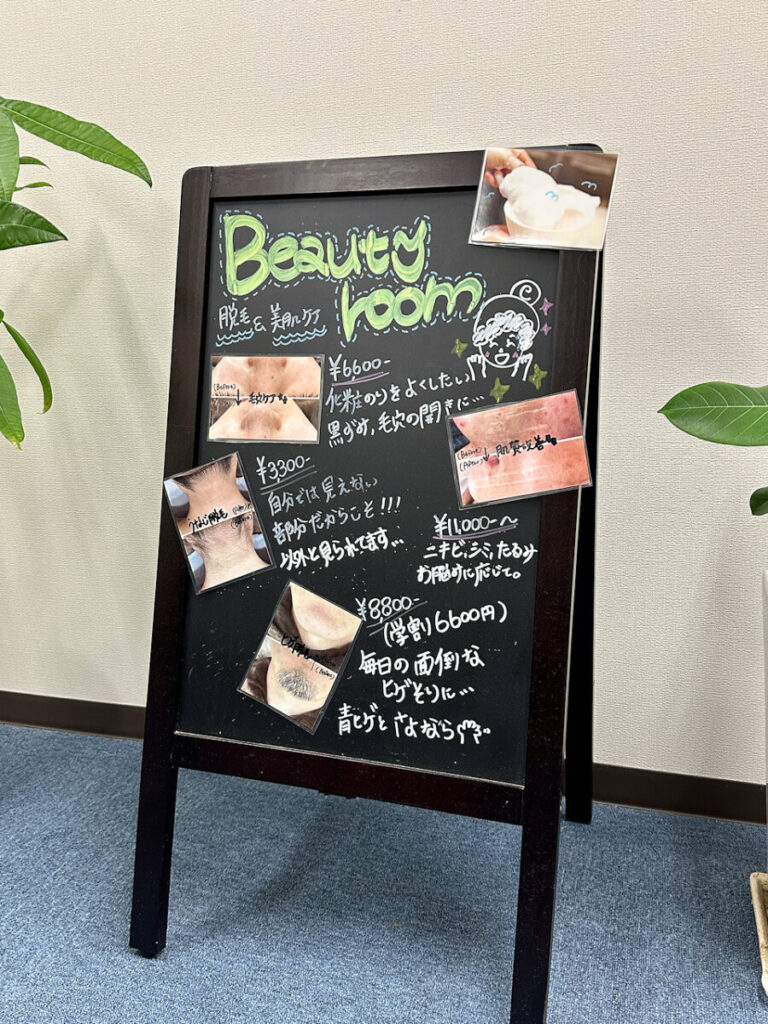 Beauty
room
脱毛 & 美肌ケア
¥6600-
化粧のりをよくしたい
黒ずみ,毛穴の開きに…
(Before)
↓ 毛穴ケア
(Before)
(After)↓ 肌質改善
¥3300-
自分では見えない
部分だからこそ!!!
以外と見られてます…
うなじ脱毛
¥11,000-~
ニキビ,シミ,たるみ
お悩みに応じて。
¥8800-
(学割6600円)
毎日の面倒な
ヒゲそりに…
青ヒゲとさよなら